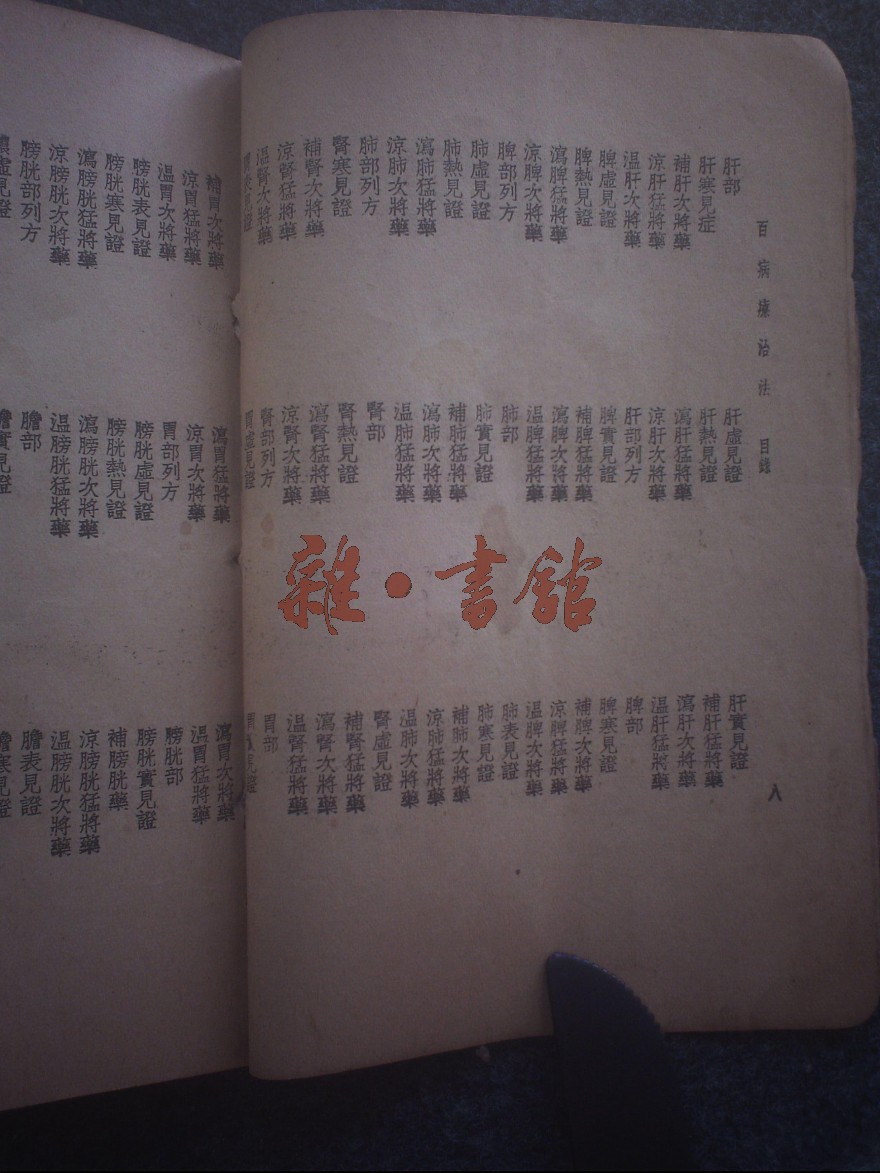 百病療治法 目錄
八
肝部
肝虛見證
肝實見證
肝寒見症
肝熱見證
補肝猛將藥
補肝次將藥
瀉肝猛將藥
瀉肝次將藥
涼肝猛將藥
涼肝次將藥
溫肝猛將藥
溫肝次將藥
肝部列方
脾部
脾虛見證
脾實見證
脾寒見證
脾熱見證
補脾猛將藥
補脾次將藥
瀉脾猛將藥
瀉脾次將藥
涼脾猛將藥
涼脾次將藥
溫脾猛將藥
溫脾次將藥
脾部列方
肺部
肺表見證
肺虛見證
肺實見證
肺寒見證
肺熱見證
補肺猛將藥
補肺次將藥
瀉肺猛將藥
瀉肺次將藥
涼肺猛將藥
涼肺次將藥
溫肺猛將藥
溫肺次將藥
肺部列方
腎部
腎虛見證
腎寒見證
腎熱見證
補腎猛將藥
補腎次將藥
瀉腎猛將藥
瀉腎次將藥
涼腎猛將藥
涼腎次將藥
溫腎猛將藥
溫腎次將藥
腎部列方
胃部
胃虛見證
補胃次將藥
瀉胃猛將藥
瀉胃次將藥
涼胃猛將藥
涼胃次將藥
溫胃猛將藥
溫胃次將藥
胃部列方
膀胱部
膀胱表見證
膀胱虛見證
膀胱實見證
膀胱寒見證
膀胱熱見證
補膀胱藥
瀉膀胱猛將藥
瀉膀胱次將藥
涼膀胱猛將藥
涼膀胱次將藥
溫膀胱猛將藥
溫膀胱次將藥
膀胱部列方
膽部
膽表見證
膽實見證
膽寒見證
雜·書館